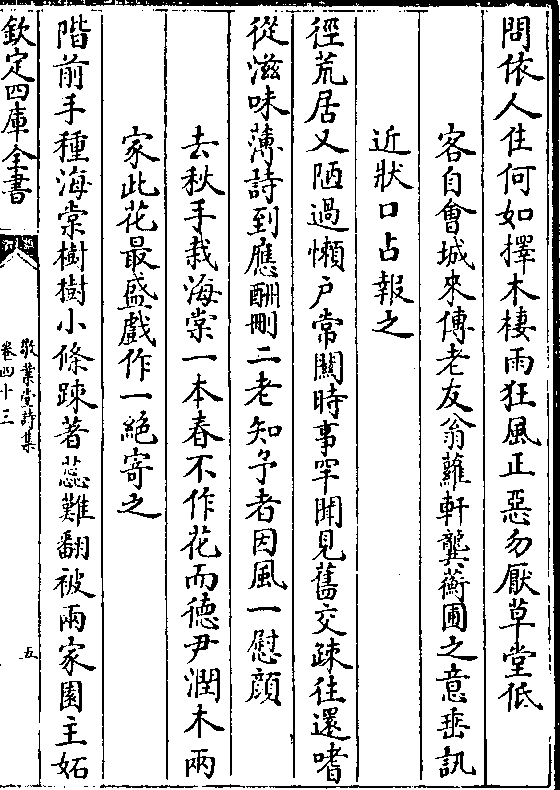 問依人住何如擇木棲雨狂風正惡勿厭草堂低
客自會城來傳老友翁蘿軒龔蘅圃之意垂訊
近狀口占報之
徑荒居又陋過懶户常關時事罕聞見舊交疎往還嗜
從滋味薄詩到應酬刪二老知予者因風一慰顔
去秋手栽海棠一本春不作花而德尹潤木兩
家此花最盛戲作一絶寄之
階前手種海棠樹樹小條踈著蕊難翻被兩家園主妬
欽定四庫全書
敬業堂詩集
卷四十三
五